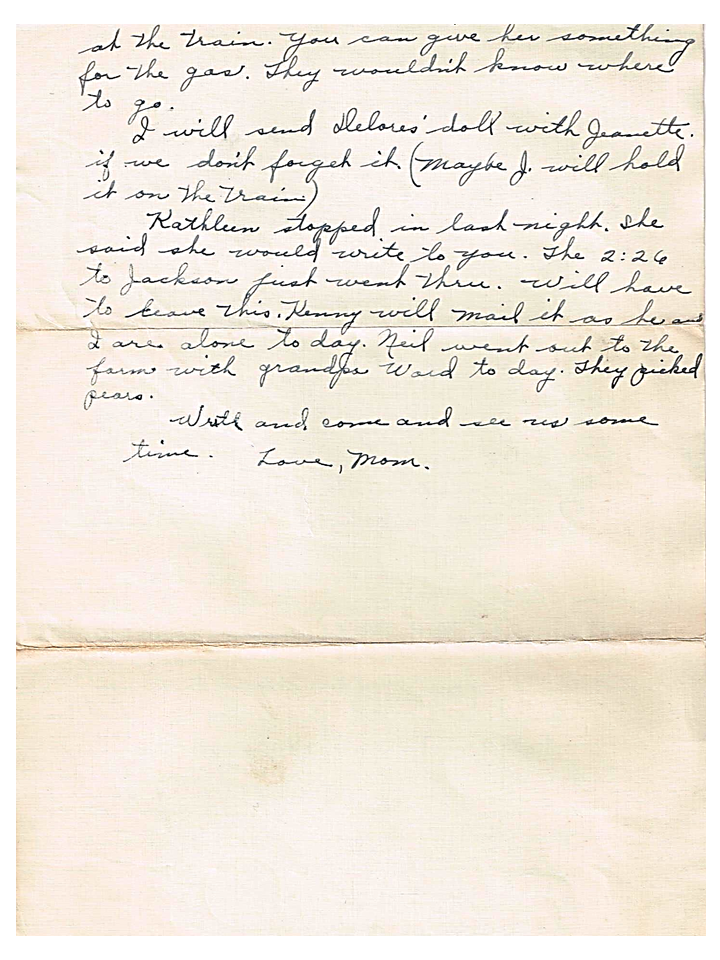 at the train. You can give her something
for the gas. They wouldn't know where
to go.
I will send Delores' doll with Jeanette.
if we don't forget it. (Maybe J. will hold
it on the train)
Kathleen stopped in last night. She
said she would write to you. The 2:26
to Jackson just went thru. Will have
to leave this. Kenny will mail it as he and
I are alone to day. Neil went out to the
farm with grandpa Ward to day. They picked
pears.
Write and come and see us some
time. Love, Mom.